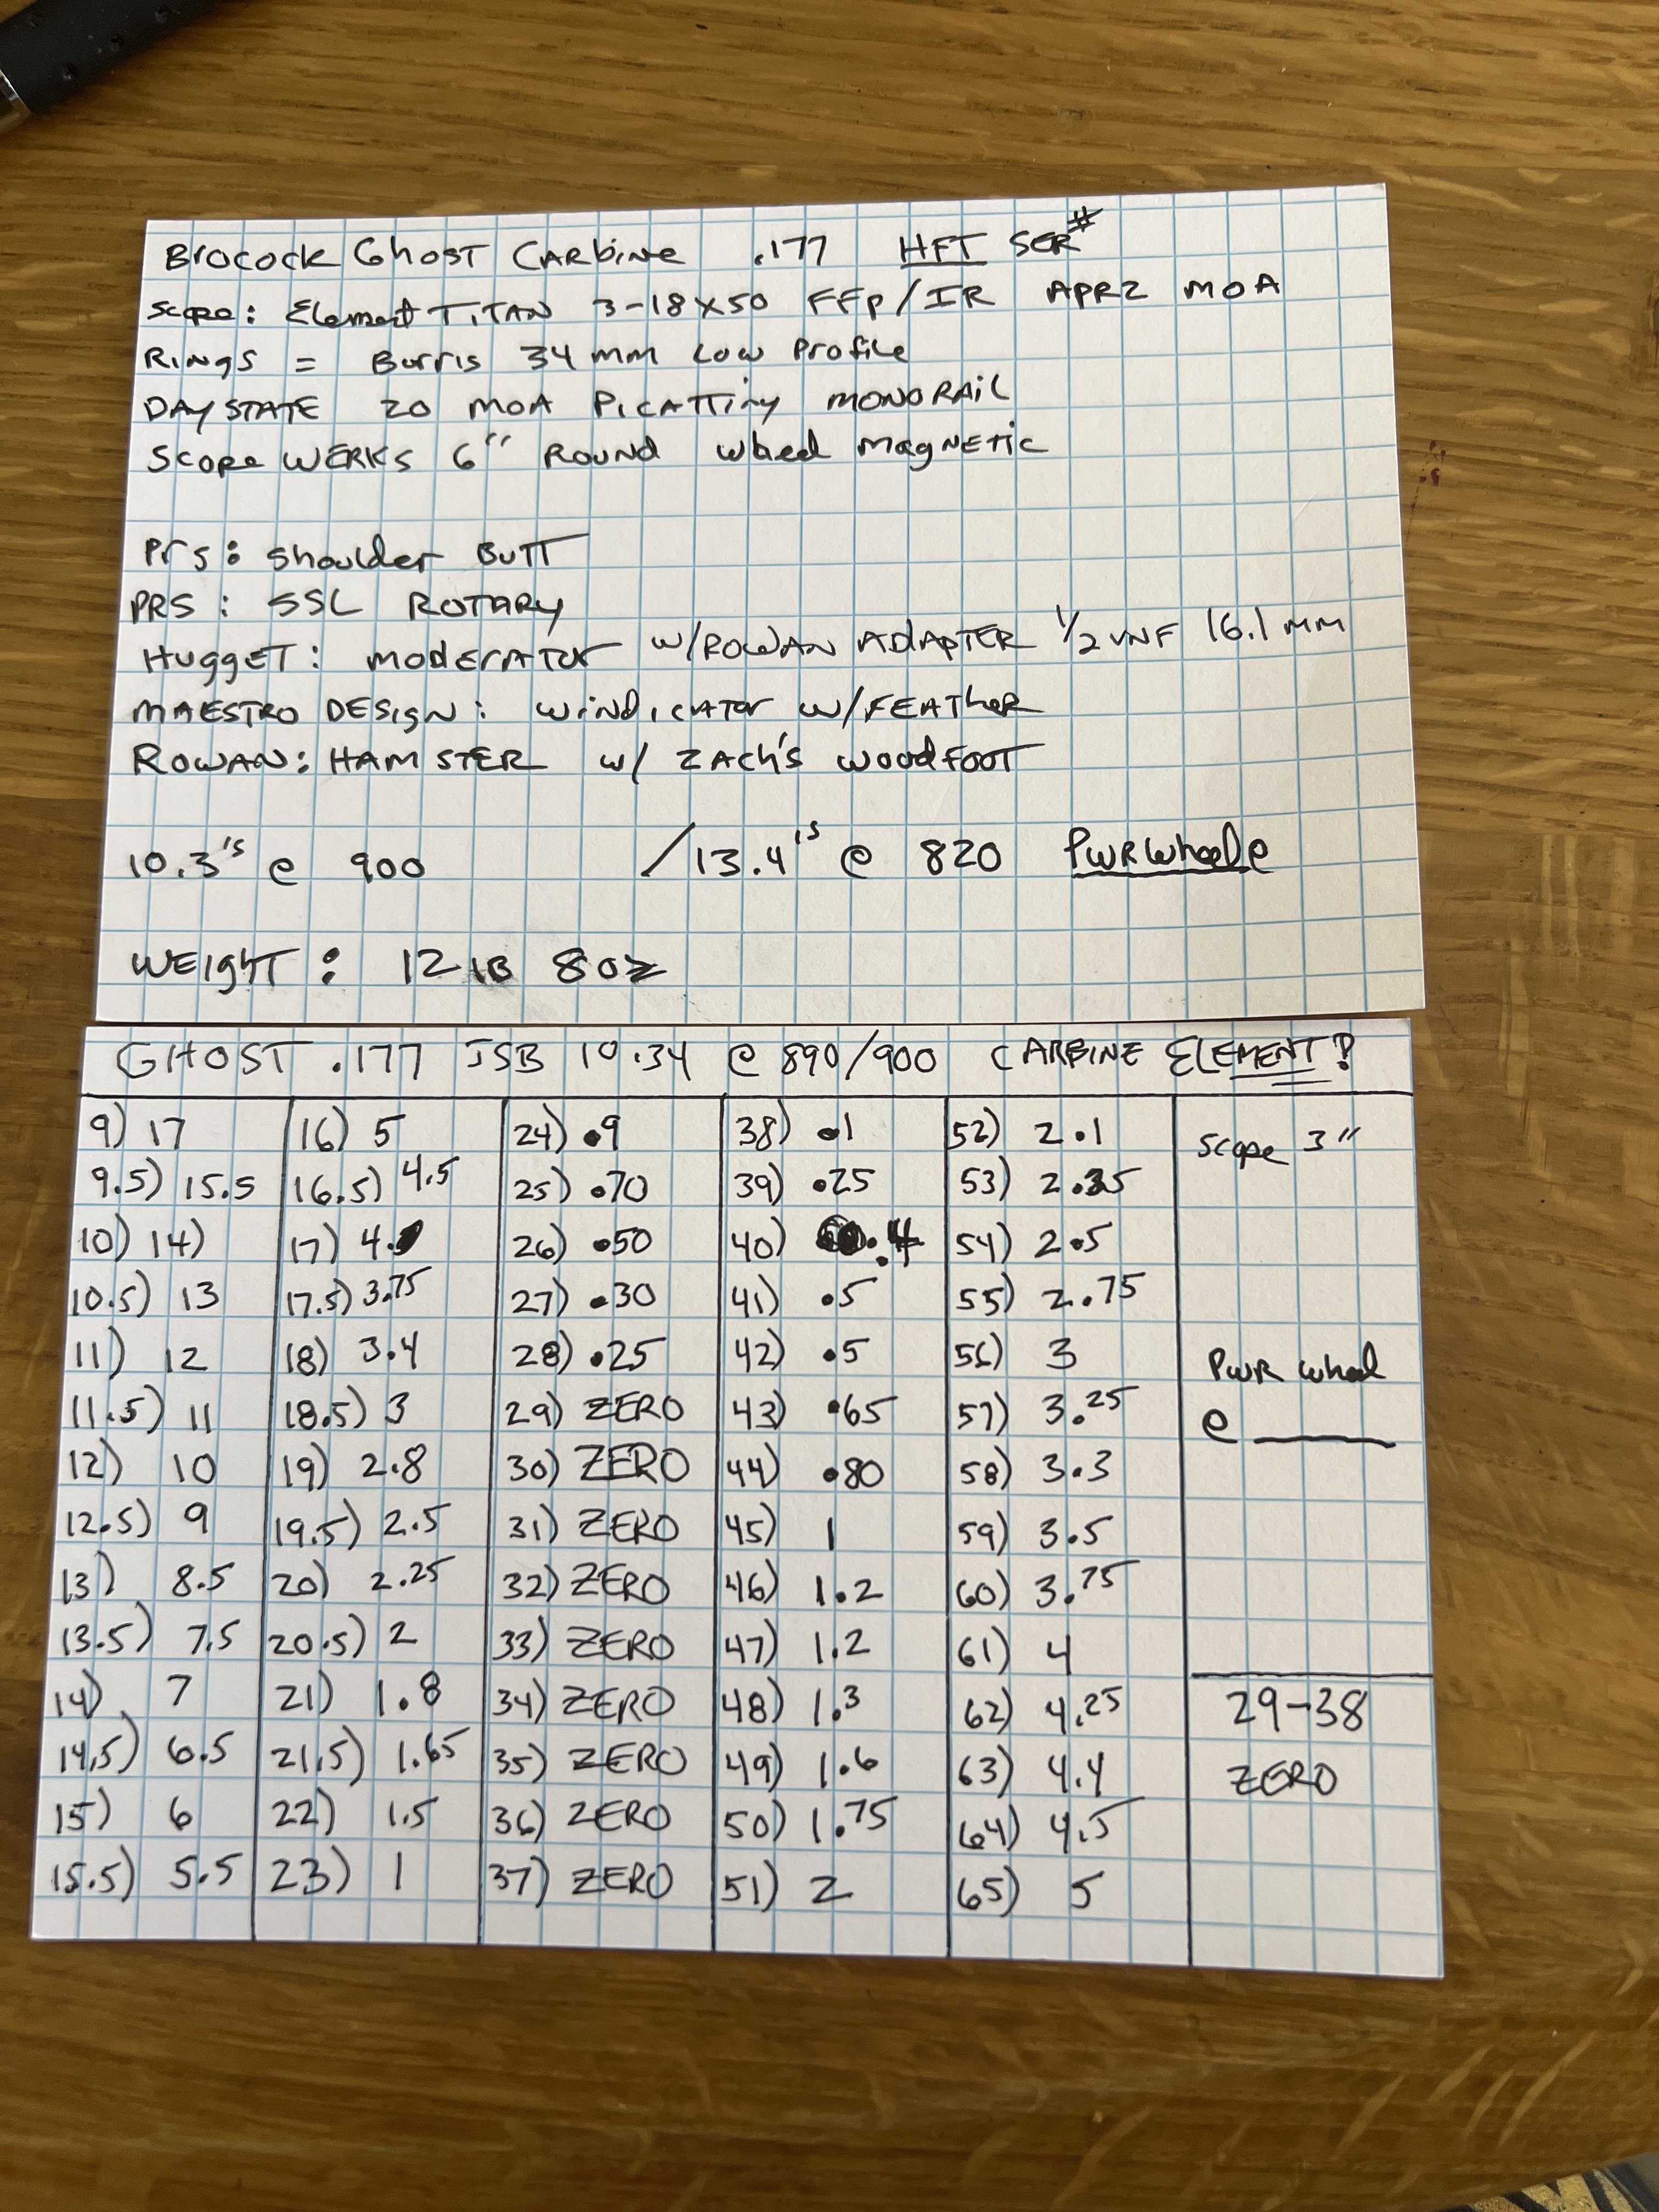 Brocock Ghost Carbine .177 HFT SER#
Scope: Element TiTAN 3-18x50 FFP/IR APR2 MOA
Rings = Burris 34mm Low Profile
DAYSTATE 20 MOA PICATTiny MONORAIL
Scope WERKS 6" ROUND wheel MagNETIC
Prs: Shoulder BuTT
PRS: SSL ROTARY
HuggeT: moderator w/ROWAN ADAPTER 1/2 UNF 16.1 MM
MAESTRO DESIGN: windicator w/FEATHER
ROWAN: HAMSTER w/ ZACH'S woodFOOT
10.3's @ 900 /13.4's @ 820 PwrWheel @
WEIGHT: 12 lB 8 oz
GHOST .177 JSB 10.34 @ 890/900 CARBINE ELEMENT!
9) 17 16) 5 24) .9 38) .1 52) 2.1 Scope 3"
9.5) 15.5 16.5) 4.5 25) .70 39) .25 53) 2.35
10) 14) 17) 4. 26) .50 40) .4 54) 2.5
10.5) 13 17.5) 3.75 27) .30 41) .5 55) 2.75
11) 12 18) 3.4 28) .25 42) .5 56) 3 PWR wheel
11.5) 11 18.5) 3 29) ZERO 43) .65 57) 3.25 @ ____
12) 10 19) 2.8 30) ZERO 44) .80 58) 3.3
12.5) 9 19.5) 2.5 31) ZERO 45) 1 59) 3.5
13) 8.5 20) 2.25 32) ZERO 46) 1.2 60) 3.75
13.5) 7.5 20.5) 2 33) ZERO 47) 1.2 61) 4
14) 7 21) 1.8 34) ZERO 48) 1.3 62) 4.25 29-38
14.5) 6.5 21.5) 1.65 35) ZERO 49) 1.6 63) 4.4 ZERO
15) 6 22) 1.5 36) ZERO 50) 1.75 64) 4.5
15.5) 5.5 23) 1 37) ZERO 51) 2 65) 5